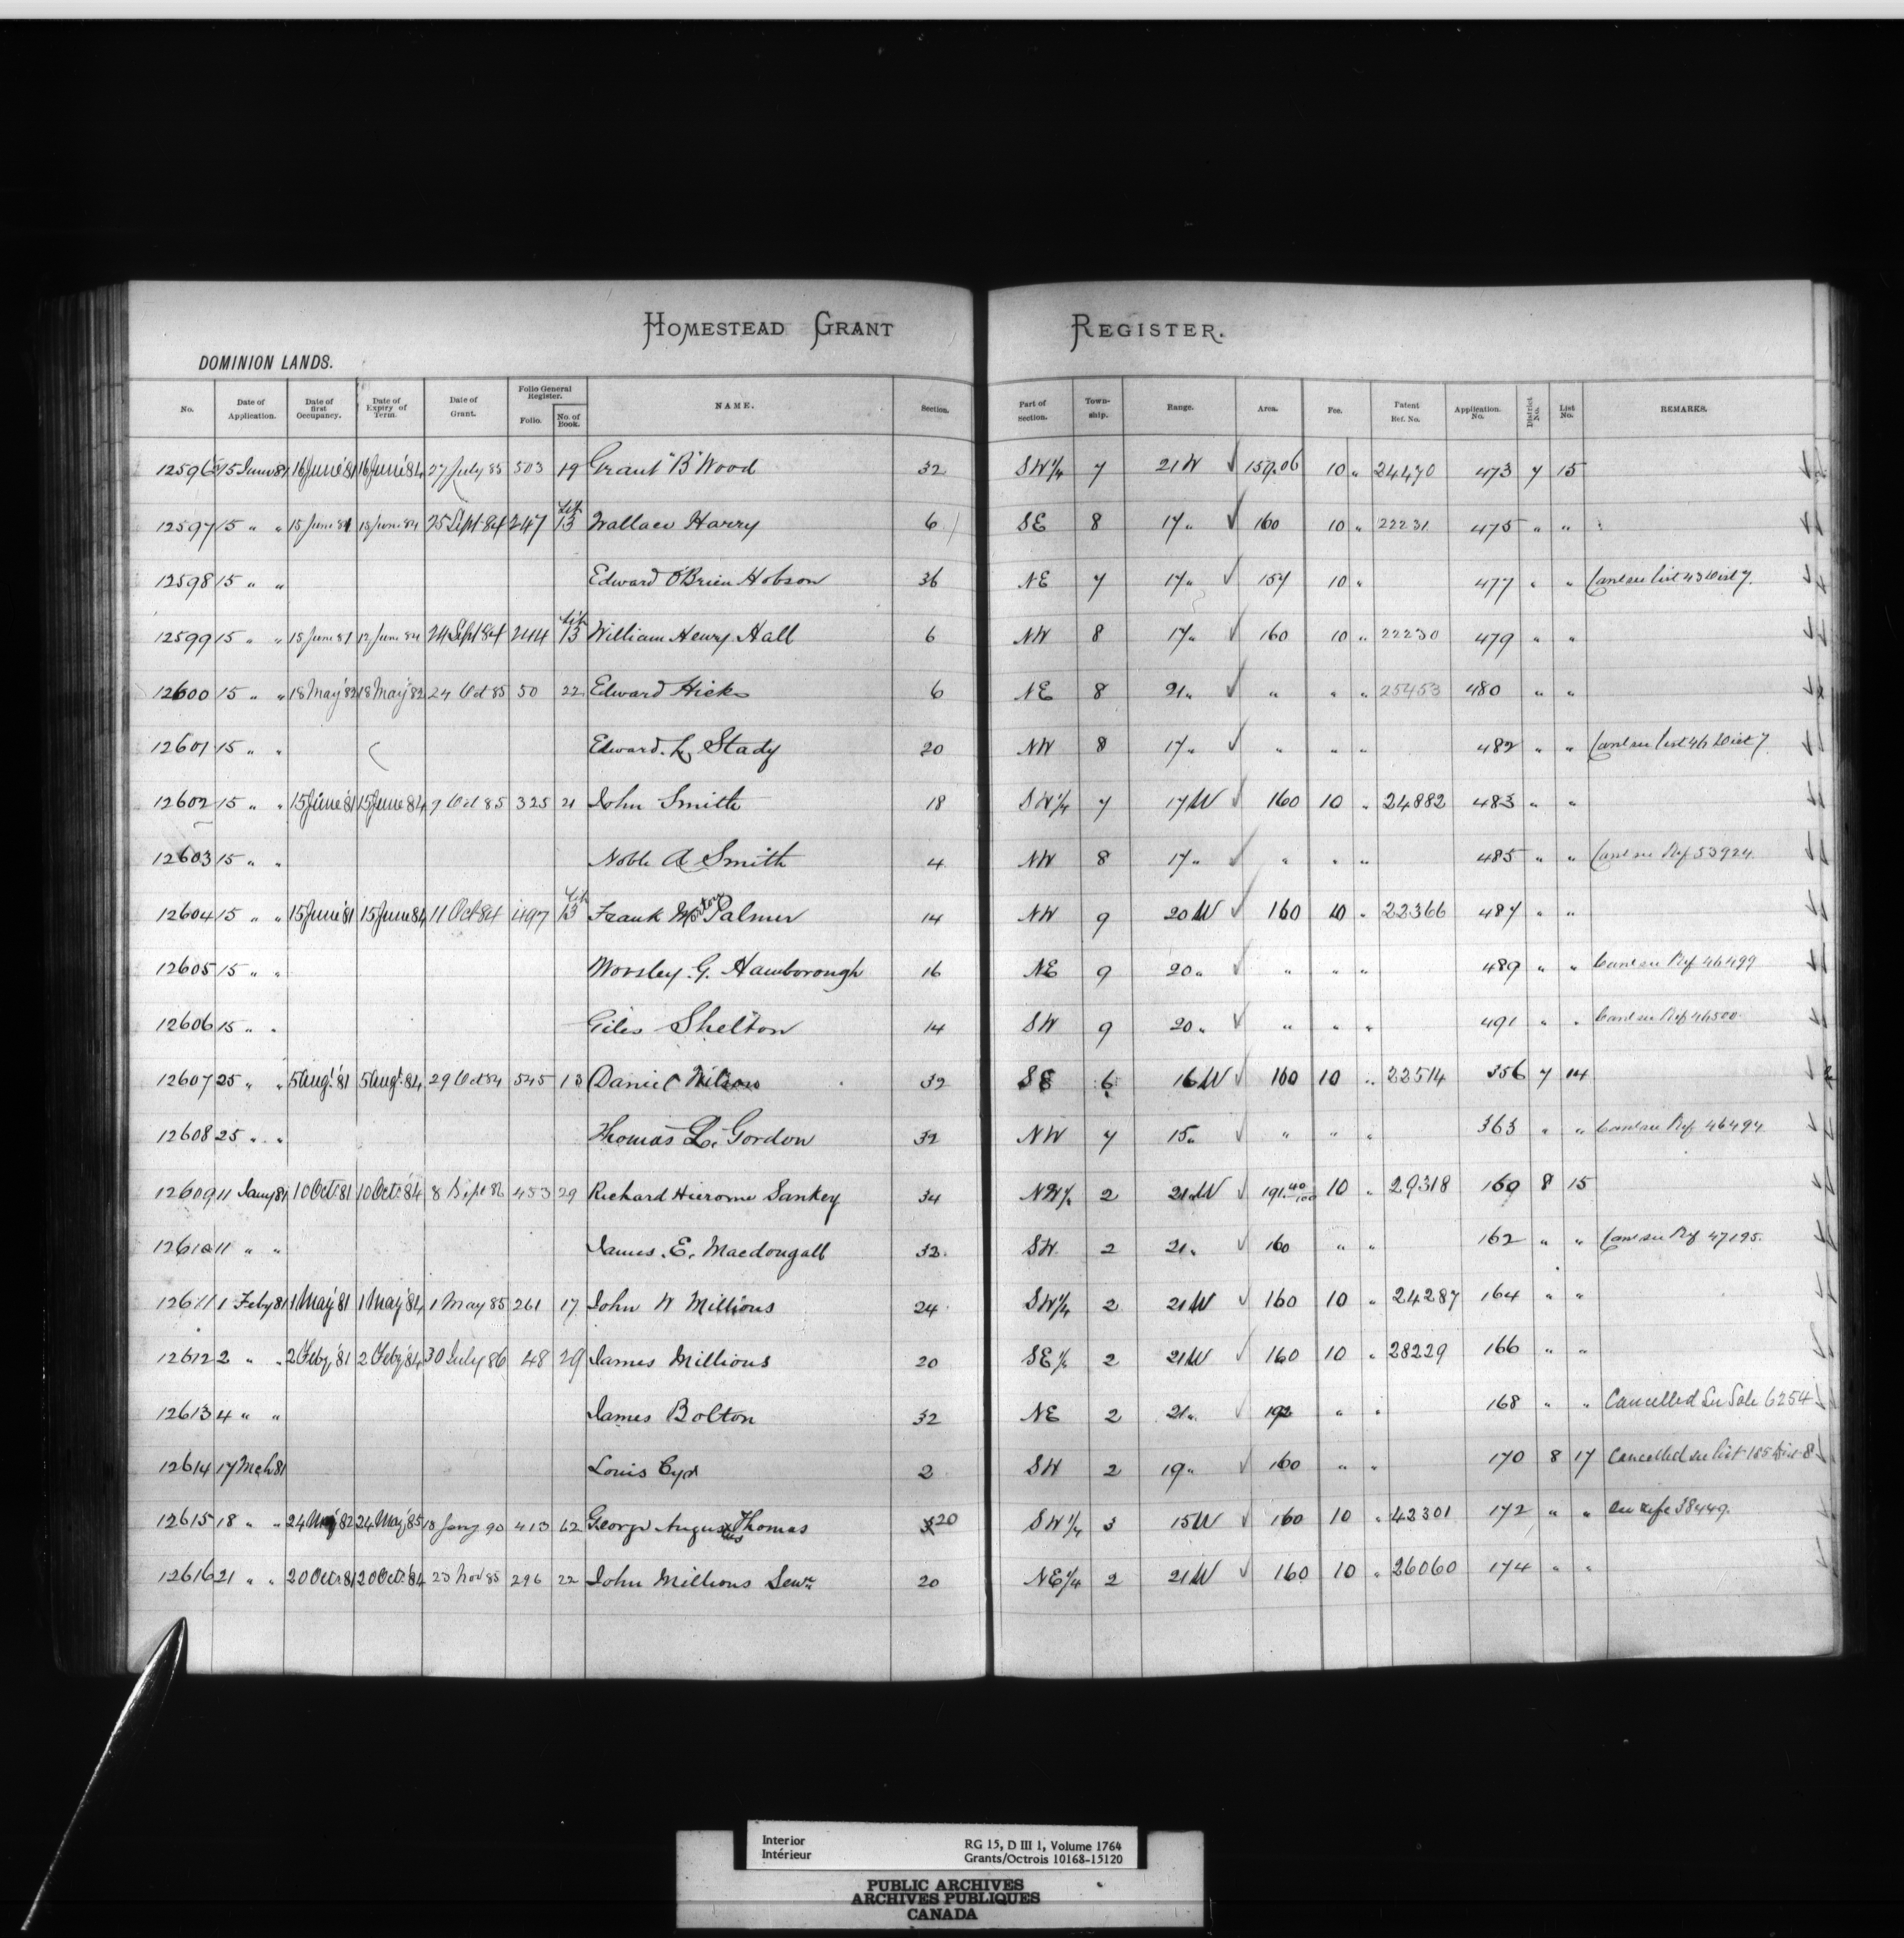 HOMESTEAD GRANT REGISTER.
DOMINION LANDS.
No. Date of Application. Date of first Occupancy. Date of Expiry of Term. Date of Grant. Folio General Register. Folio. No. of Book. NAME. Section. Part of section. Town-ship. Range. Area. Fee. Patent Ref. No. Application. No. District No. List No. REMARKS.
12596 15 June 81 16 June '81 16 June '84 27 July 85 503 19 Grant "B" Wood 32 SW 1/4 7 21 W ✓ 159.06 10 " 24470 473 7 15
12597 15 " " 15 June 81 15 June 84 25 Sept 84 247 Lib 13 Wallace Harry 6 SE 8 17 " ✓ 160 10 " 22231 475 " "
12598 15 " " Edward O'Brien Hobson 36 NE 7 17 " ✓ 157 10 " 477 " " Canl see list 43 Dist 7.
12599 15 " " 15 June 81 24 Sept 84 244 Lib 13 William Henry Hall 6 NW 8 17 " ✓ 160 10 " 22230 479 " "
12600 15 " " 18 May '82 18 May '82 24 Oct 85 50 22 Edward Hicks 6 NE 8 21 " ✓ " " " 25453 480 " "
12601 15 " " Edward. L. Stady 20 NW 8 17 " ✓ " " " 482 " " Canl see list 46 Dist 7
12602 15 " " 15 June '81 15 June 84 9 Oct 85 325 21 John Smith 18 SW 1/4 7 17 W ✓ 160 10 " 24882 483 " "
12603 15 " " Noble A Smith 4 NW 8 17 " ✓ " " " 485 " " Canl see Ref 53924.
12604 15 " " 15 June '81 15 June 84 11 Oct 84 497 Lib 13 Frank Morton Palmer 14 NW 9 20 W ✓ 160 10 " 22366 487 " "
12605 15 " " Worsley. G. Hamborough 16 NE 9 20 " ✓ " " " 489 " " Canl see Ref 46499
12606 15 " " Giles Shelton 14 SW 9 20 " ✓ " " " 491 " " Canl see Ref 46500
12607 25 " " 5 Augt. '81 5 Augt. 84 29 Oct 84 545 13 Daniel Wilson 32 SE 6 16 W ✓ 160 10 " 22514 356 7 14
12608 25 " " Thomas L. Gordon 32 NW 7 15 " ✓ " " " 363 " " Canl see Ref 46494
12609 11 Jany 81 10 Oct. 81 10 Oct. '84 8 Sept 86 453 29 Richard Hierome Sankey 34 NW 1/4 2 21 W ✓ 191 40/100 10 " 29318 160 8 15
12610 11 " " James. E. Macdougall 32 SW 2 21 " ✓ 160 " " 162 " " Canl see Ref 47195.
12611 1 Feby 81 1 May '81 1 May '84 1 May 85 261 17 John W Millions 24 SW 1/4 2 21 W ✓ 160 10 " 24287 164 " "
12612 2 " " 2 Feby '81 2 Feby '84 30 July 86 48 29 James Millions 20 SE 1/4 2 21 W ✓ 160 10 " 28229 166 " "
12613 4 " " James Bolton 32 NE 2 21 " ✓ 192 " " 168 " " Cancelled See Sale 6254
12614 17 Mch 81 Louis Cyr 2 SW 2 19 " ✓ 160 " " 170 8 17 Cancelled see list 185 Dist 8
12615 18 " " 24 May 82 24 May '85 18 Jany 90 413 62 George Augustus Thomas 20 SW 1/4 3 15 W ✓ 160 10 " 42301 172 " " See refce 38449.
12616 21 " " 20 Oct 81 20 Oct. '84 23 Nov 85 296 22 John Millions Senr. 20 NE 1/4 2 21 W ✓ 160 10 " 26060 174 " "
Interior
Intérieur
RG 15, D III 1, Volume 1764
Grants/Octrois 10168-15120
PUBLIC ARCHIVES
ARCHIVES PUBLIQUES
CANADA